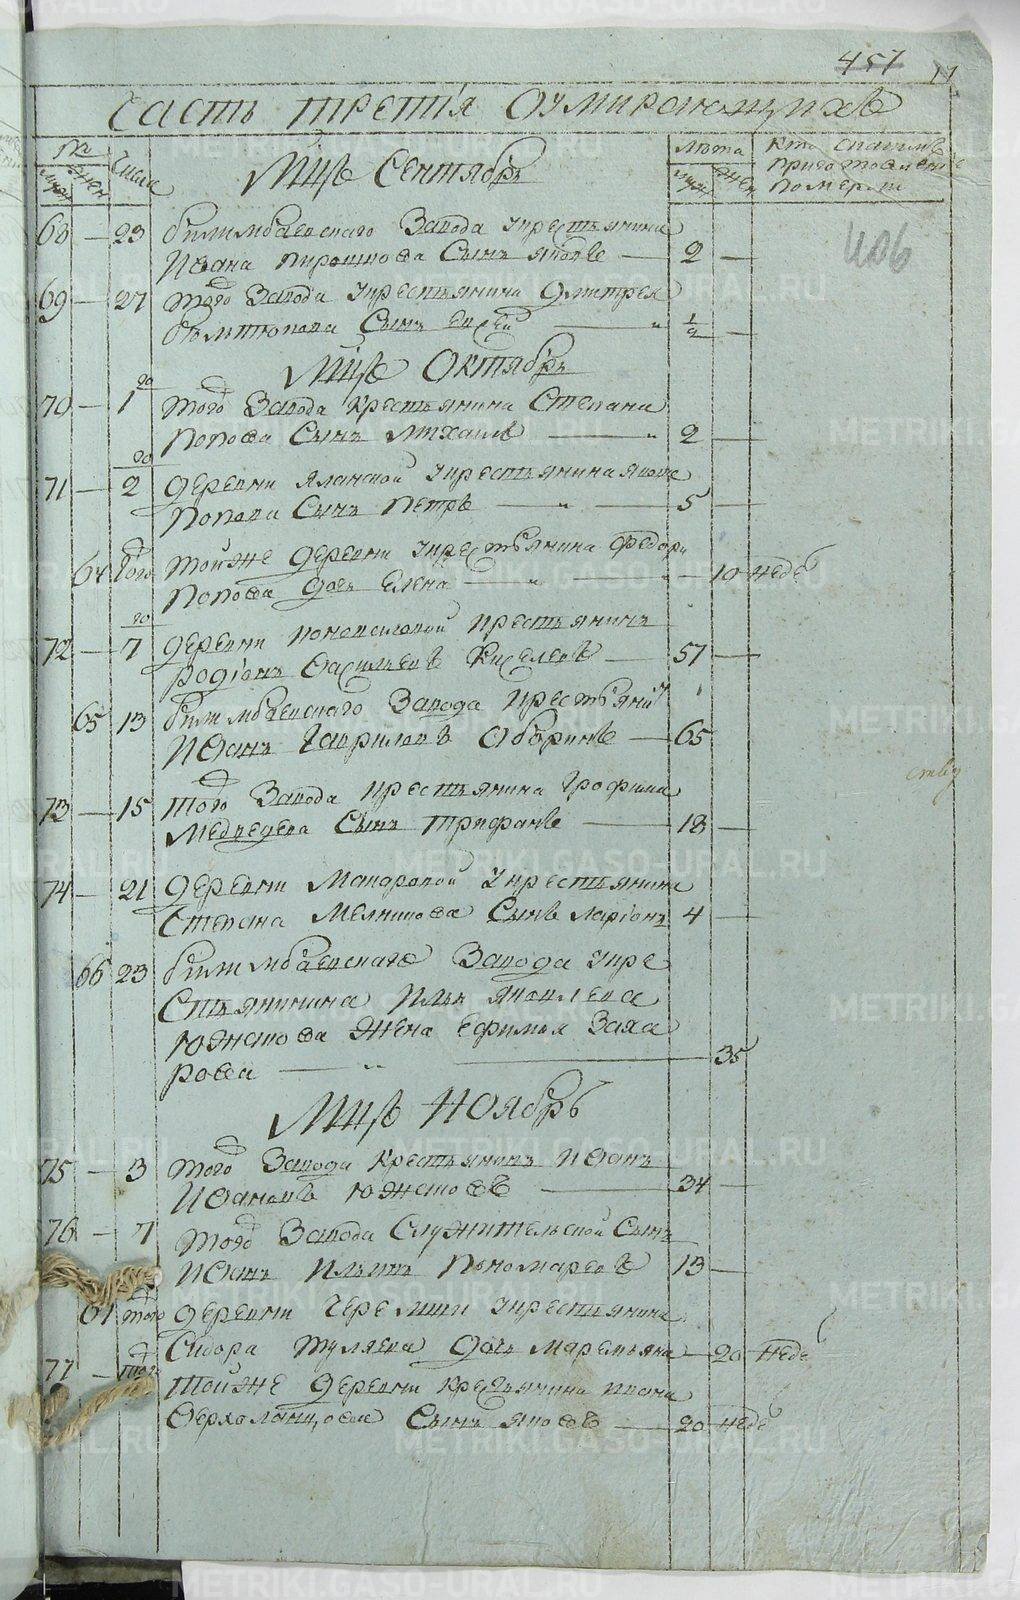 457
Часть третiя оумирающихъ
№ числа Мцъ Сентябрь лѣта кто какимъ
муж жен муж жен приготовленiе
померли
406
68 — 23 билимбаевскаго завода крестьянина
Ивана сынъ яковъ — 2 —
69 — 27 того завода крестьянина Дмитрея
сынъ — " 1/2 —
Мцъ Октябрь
70 — 1го того завода крестьянина Степана
Попова сынъ Михаилъ — " 2 —
71 — 2го деревни крестьянина якова
Попова сынъ Петръ — " — 5 —
64 того тойже деревни крестьянина Федора
Попова дочь Елена — " — 10 неде
72 — 7го деревни коноваловой крестьянинъ
родiонъ васильевъ Киселевъ — 57 —
65 13 билимбаевскаго завода крестьянинъ
Иванъ Гаврилавъ Оборинъ — 65
73 — 15 того завода крестьянина Трофима
Медведева сынъ трифанъ — 18 —
74 — 21 деревни Макаровой крестьянина
Степана Мелникова сынъ ларiонъ 4 —
66 23 билимбаевскаго завода кре
стьянинина Ильи яковлева
южакова жена Ефимья Заха
рова — " — 35
Мцъ Ноябрь
75 — 3 того завода крестьянинъ Иванъ
Ивановъ южаковъ — 34 —
76 — 7 того завода служительской сынъ
Иванъ Ильинъ Пономаревъ 13 —
67 того деревни Черемши крестьянина
Сидора туляева дочь маремьяна — 20 неде
77 — того тойже деревни крестьянина ивана
верхаланцова сынъ яковъ — 20 неде